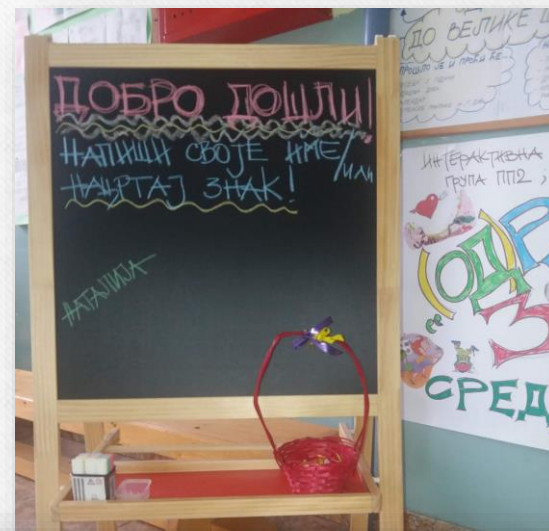 ДОБРО ДОШЛИ!
НАПИШИ СВОЈЕ ИМЕ/ИЛИ
НАЦРТАЈ ЗНАК!
НАТАЛИЈА
ДО ВЕЛИКЕ
ПРОШЛО ЈЕ И ПРОЋИ ЋЕ...
ИНТЕРАКТИВНА
ГРУПА ПП2,
(ОД)
СРЕД